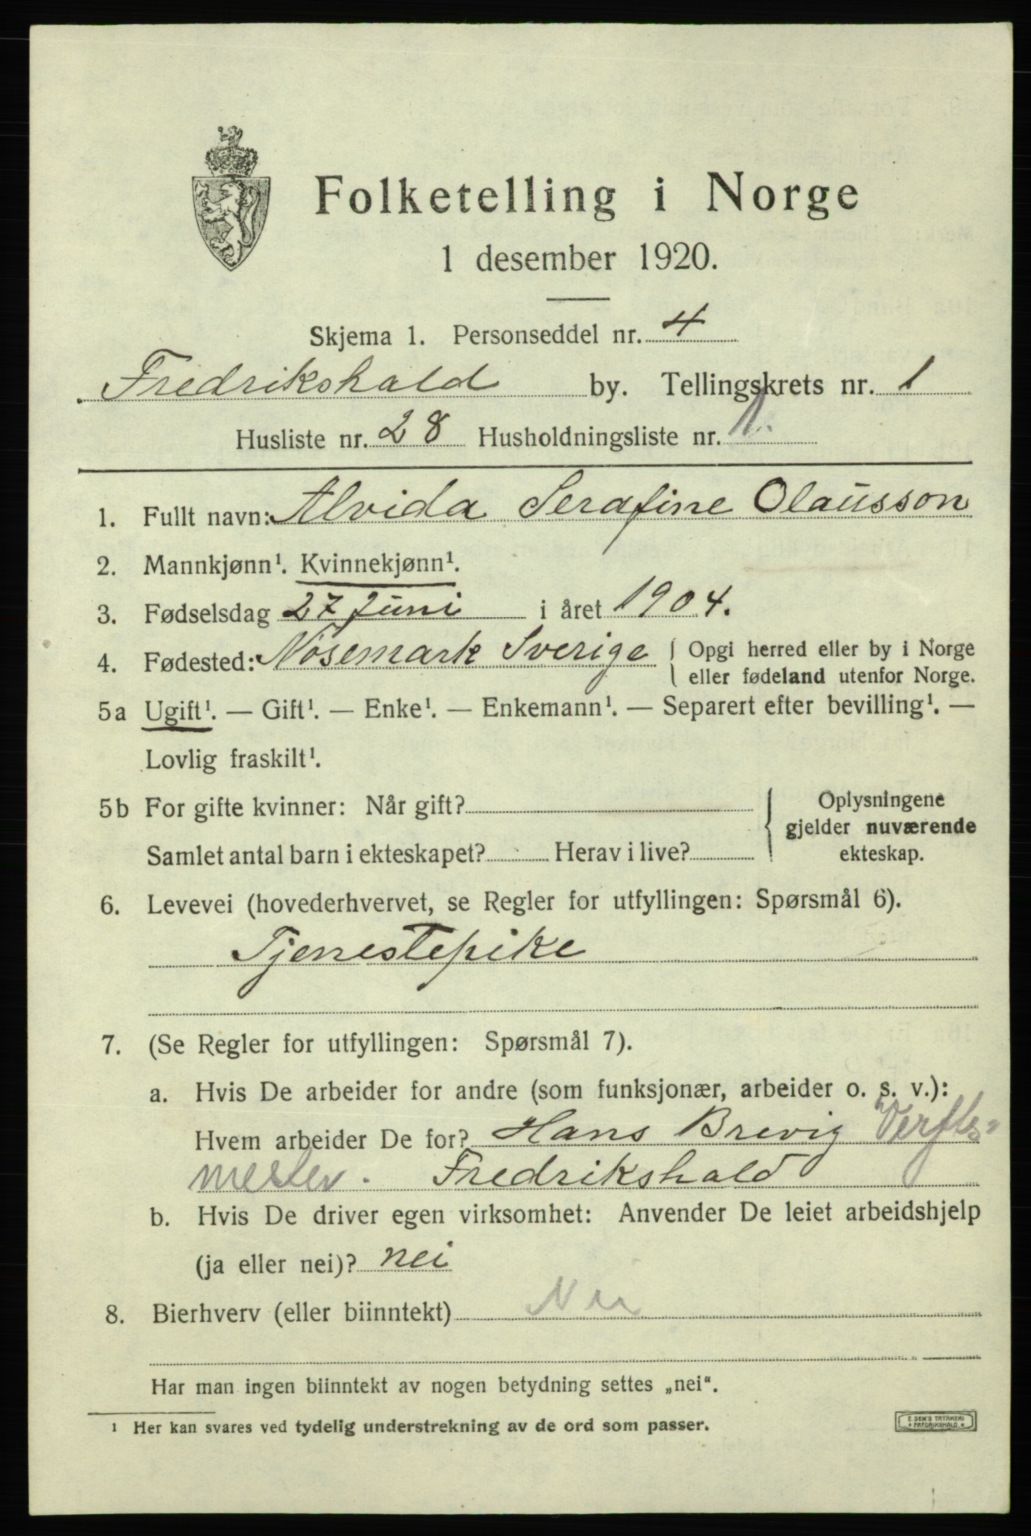 Folketelling i Norge
1 desember 1920.
Skjema 1. Personseddel nr. 4
Fredrikshald by. Tellingskrets nr. 1
Husliste nr. 28 Husholdningsliste nr. 1.
1. Fullt navn: Alvida Serafine Olaüsson
2. Mannkjønn¹. Kvinnekjønn¹.
3. Fødselsdag 27 Juni i året 1904.
4. Fødested: Nösemark Sverige { Opgi herred eller by i Norge
eller fødeland utenfor Norge.
5a Ugift¹. — Gift¹. — Enke¹. — Enkemann¹. — Separert efter bevilling¹. —
Lovlig fraskilt¹.
5b For gifte kvinner: Når gift?
Samlet antal barn i ekteskapet? Herav i live?
Oplysningene
gjelder nuværende
ekteskap.
6. Levevei (hovederhvervet, se Regler for utfyllingen: Spørsmål 6).
Tjenestepike
7. (Se Regler for utfyllingen: Spørsmål 7).
a. Hvis De arbeider for andre (som funksjonær, arbeider o. s. v.):
Hvem arbeider De for? Hans Brevig Verfts-
mester. Fredrikshald
b. Hvis De driver egen virksomhet: Anvender De leiet arbeidshjelp
(ja eller nei)? nei
8. Bierhverv (eller biinntekt) Nei
Har man ingen biinntekt av nogen betydning settes „nei“.
¹ Her kan svares ved tydelig understrekning av de ord som passer.